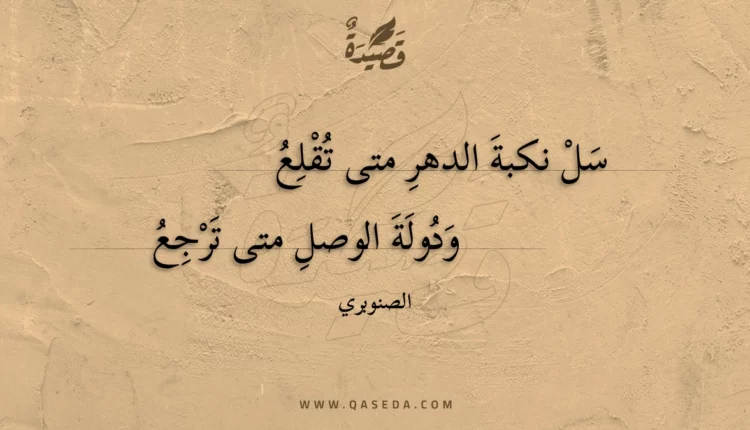 قَصِيْدَةٌ
سَلْ نكبةَ الدهرِ متى تُقْلِعُ
وَدُولَةَ الوصلِ متى تَرْجِعُ
الصنوبري
WWW.QASEDA.COM